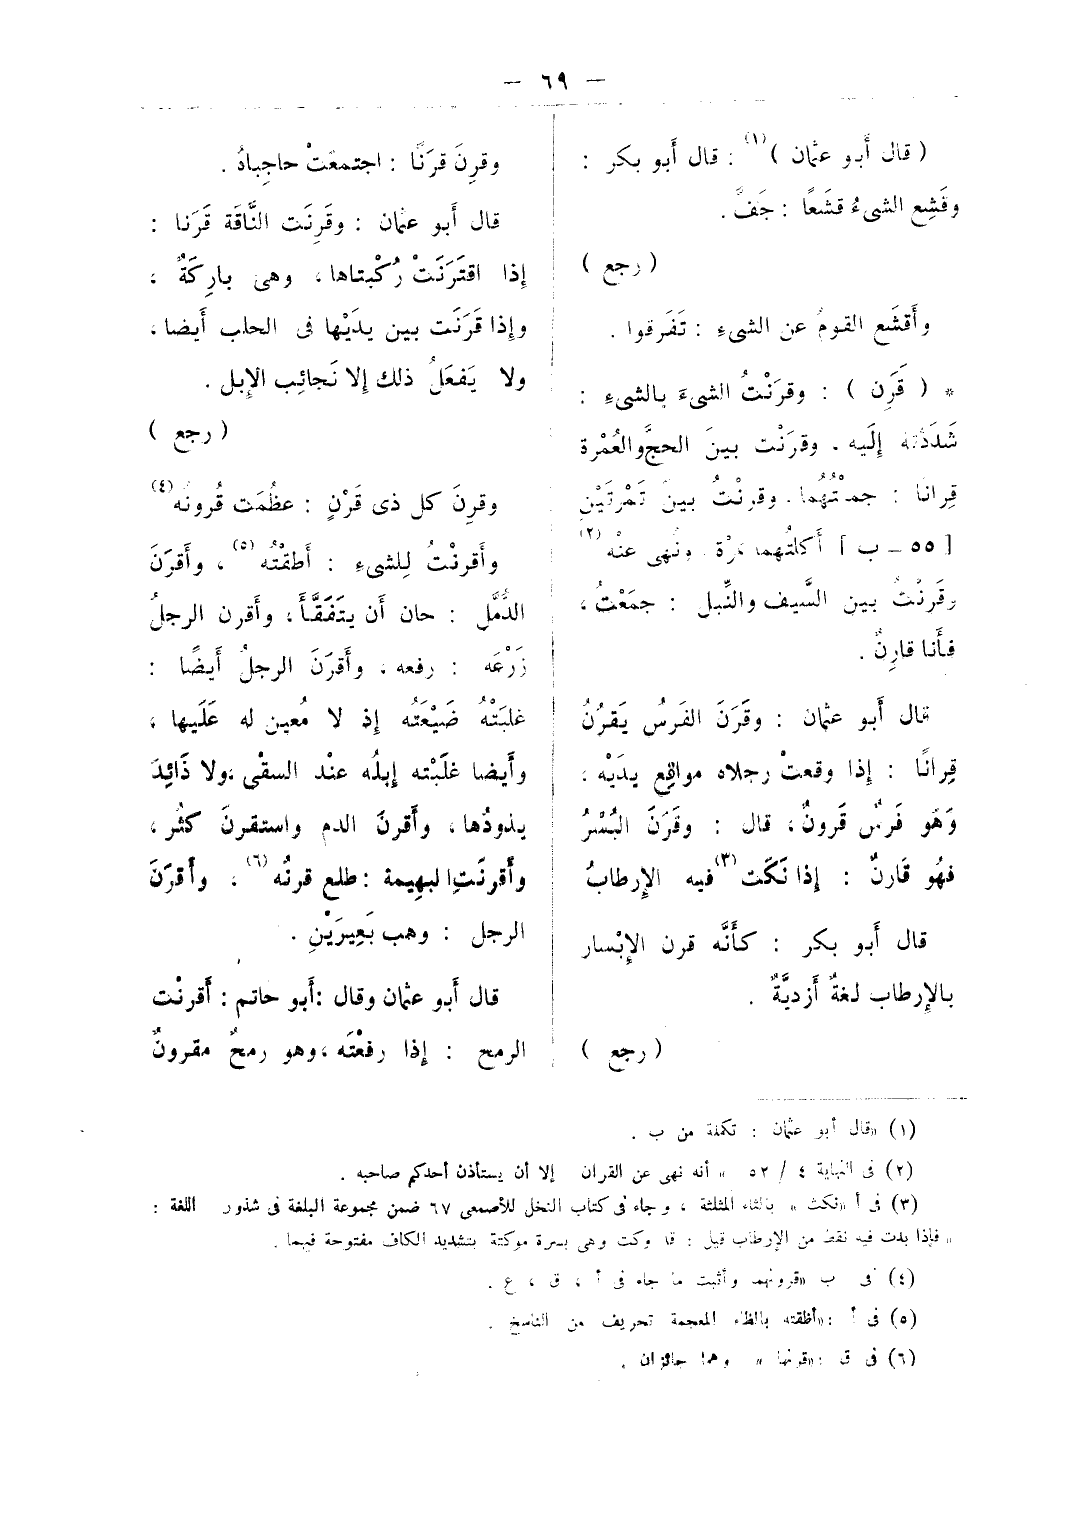 — ٦٩ —
( قال أَبو عثمان )(١) : قال أَبو بكر :
وقَشِع الشىءُ قشَعًا : جَفَّ .
( رجع )
وأَقشَع القومُ عن الشىءِ : تَفَرقوا .
* ( قَرِن ) : وقرَنْتُ الشىءَ بالشىءِ :
شَدَدْتُه إِلَيه . وقرَنْت بينَ الحجِّ والعُمْرة
قِرانا : جمعْتُهُما . وقرنْتُ بينَ تَمْرتَيْنِ
[ ٥٥ – ب ] أَكلتُهما مَرّة . ونُهى عنْه(٢)
وقَرنْتُ بين السَّيف والنِّبل : جمَعْتُ ،
فأَنا قارِنٌ .
قال أَبو عثمان : وقَرَنَ الفَرسُ يَقرُنُ
قِرانًا : إِذا وقعتْ رجلاه مواقِع يديْه ،
وَهَو فَرسٌ قَرونٌ ، قال : وقَرَنَ البُسْرُ
فهُو قَارنٌ : إِذا نَكَّت(٣) فيه الإِرطابُ
قال أَبو بكر : كأَنَّه قرن الإِبْسار
بالإِرطاب لغةٌ أَزديَّةٌ .
( رجع )
وقرِنَ قرَنًا : اجتمعَتْ حاجِباهُ .
قال أَبو عثمان : وقَرِنَت النَّاقَة قَرَنا :
إِذا اقتَرَنَتْ رُكْبتاها ، وهى بارِكَةٌ ،
وإِذا قَرَنَت بين يدَيْها فى الحلب أَيضا ،
ولا يَفعَلُ ذلك إِلا نَجائِب الإِبل .
( رجع )
وقرِنَ كل ذى قَرْنٍ : عظُمَت قُرونُه(٤)
وأَقرنْتُ لِلشىءِ : أَطقْتُه(٥) ، وأَقرَنَ
الدُّمَّل : حان أَن يتَفَقَّأَ ، وأَقرن الرجلُ
زَرْعَه : رفعه ، وأَقرَنَ الرجلُ أَيضًا :
غلبَتْهُ ضَيْعَتُه إِذ لا مُعين له عَلَيها ،
وأَيضا غلَبَتْه إِبلُه عنْد السقْى ، ولا ذَائِدَ
يذودُها ، وأَقرنَ الدم واستقرنَ كثُر ،
وأَقرنَت البهِيمة : طلع قرنُه(٦) ، وأَقرَنَ
الرجل : وهب بَعِيرَيْنِ .
قال أَبو عثمان وقال : أَبو حاتم : أَقرنْت
الرمح : إِذا رفعْتَه ، وهو رمحٌ مقرونٌ
(١) «قال أبو عثمان : تكملة من ب .
(٢) فى النهاية ٤ / ٥٢ « أنه نهى عن القران إلا أن يستأذن أحدكم صاحبه .
(٣) فى أ «نكث» بالثاء المثلثة ، وجاء فى كتاب النخل للأصمعى ٦٧ ضمن مجموعة البلغة فى شذور اللغة :
« فإذا بدت فيه نقط من الإرطاب قيل : قد وكت وهى بسرة موكتة بتشديد الكاف مفتوحة فيهما .
(٤) فى ب «قرونهما وأثبت ما جاء فى أ ، ق ، ع .
(٥) فى أ : «أظقته بالظاء المعجمة تحريف من الناسخ .
(٦) فى ق : «قرنها» وهما جائزان .